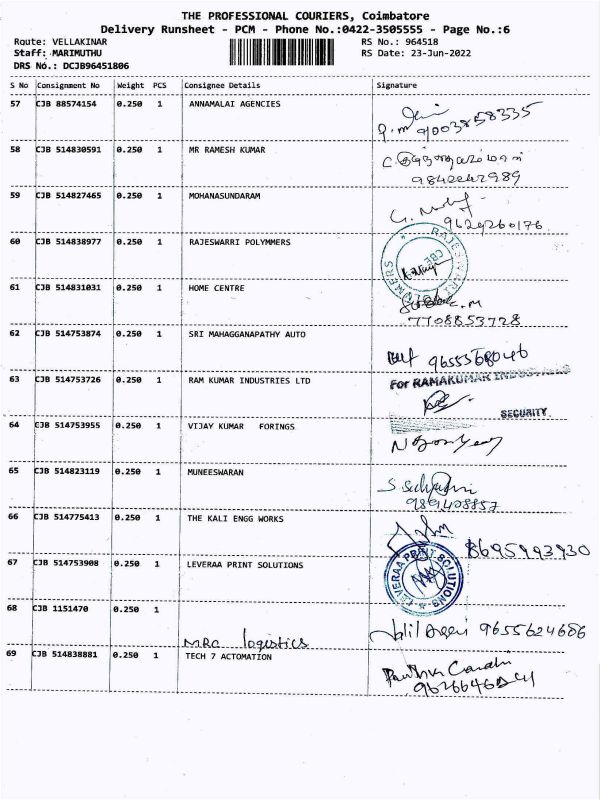 THE PROFESSIONAL COURIERS, Coimbatore
Delivery Runsheet - PCM - Phone No.:0422-3505555 - Page No.:6
Route: VELLAKINAR
RS No.: 964518
Staff: MARIMUTHU
RS Date: 23-Jun-2022
DRS No.: DCJB96451806
S No Consignment No Weight PCS Consignee Details Signature
57 CJB 88574154 0.250 1 ANNAMALAI AGENCIES
P.M 9003858335
58 CJB 514830591 0.250 1 MR RAMESH KUMAR
59 CJB 514827465 0.250 1 MOHANASUNDARAM
9629260176
60 CJB 514838977 0.250 1 RAJESWARRI POLYMMERS
RAJESWARI
CBE
61 CJB 514831031 0.250 1 HOME CENTRE
7708853728
62 CJB 514753874 0.250 1 SRI MAHAGGANAPATHY AUTO
63 CJB 514753726 0.250 1 RAM KUMAR INDUSTRIES LTD
For RAMAKUMAR INDUSTRIALS
SECURITY
64 CJB 514753955 0.250 1 VIJAY KUMAR FORINGS
65 CJB 514823119 0.250 1 MUNEESWARAN
989408857
66 CJB 514775413 0.250 1 THE KALI ENGG WORKS
8695993930
67 CJB 514753908 0.250 1 LEVERAA PRINT SOLUTIONS
LEVERAA PRINT SOLUTIONS
68 CJB 1151470 0.250 1
MRC logistics
9655624686
69 CJB 514838881 0.250 1 TECH 7 ACTOMATION